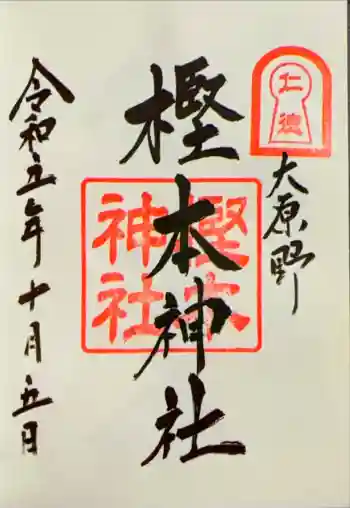 仁徳
大原野
樫本神社
樫本
神社
令和五年十月五日